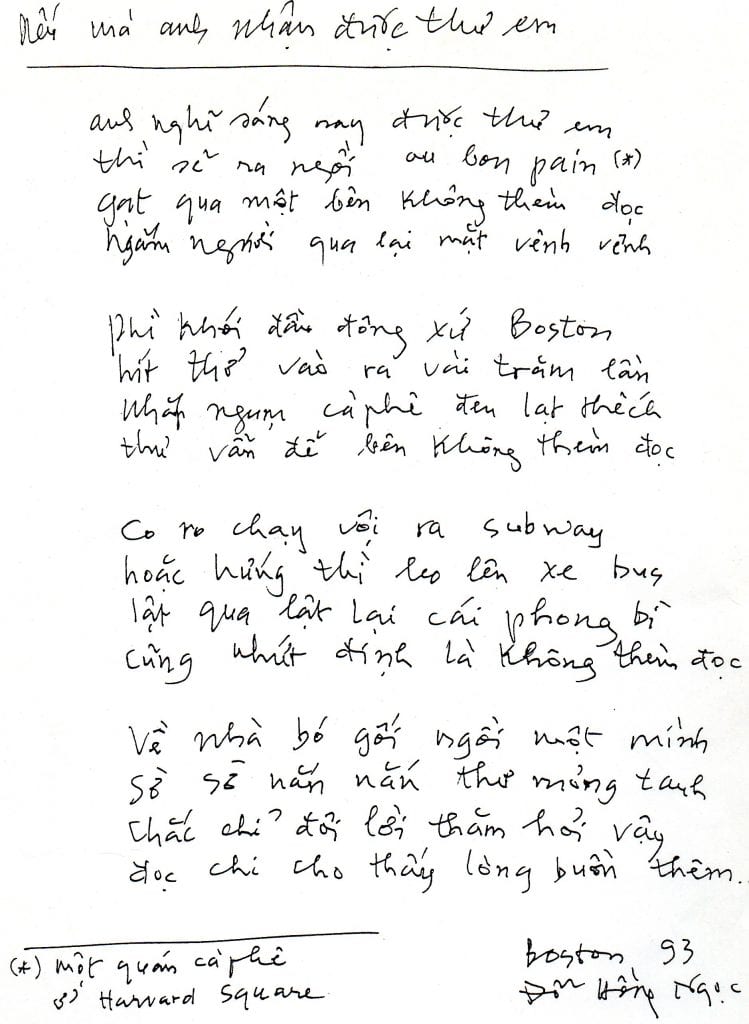 Nếu mà anh nhận được thư em
anh nghĩ sáng nay được thư em
thì sẽ ra ngồi au bon pain (*)
gạt qua một bên không thèm đọc
ngắm người qua lại mặt vênh vênh
Phì khói đầu đông xứ Boston
hít thở vào ra vài trăm lần
Nhắp ngụm cà phê đen lạt thếch
thư vẫn để bên không thèm đọc
Co ro chạy vội ra subway
hoặc hứng thì leo lên xe bus
lật qua lật lại cái phong bì
cũng nhứt định là không thèm đọc
Về nhà bó gối ngồi một mình
Sờ sờ nắn nắn thư mỏng tanh
chắc chỉ đôi lời thăm hỏi vậy
đọc chi cho thấy lòng buồn thêm..
(*) một quán cà phê
ở Harvard Square
Boston 93
Đỗ Hồng Ngọc